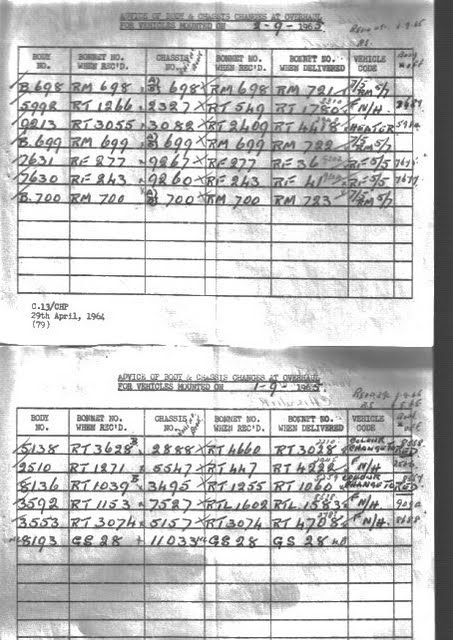 ADVICE OF BODY & CHASSIS CHANGES AT OVERHAUL
FOR VEHICLES MOUNTED ON 2-9-1965
BODY NO. BONNET NO. WHEN REC'D. CHASSIS NO. BONNET NO. WHEN REC'D. BONNET NO. WHEN DELIVERED VEHICLE CODE
B.698 RM 698 698 RM 698 RM 721 7/5 RM 5/7
5992 RT 1266 2327 RT 549 RT 1780 F N/H
9213 RT 3055 3082 RT 2409 RT 4418 HEATER
B.699 RM 699 699 RM 699 RM 722 7/5 RM 5/7
7631 RF 277 9267 RF 277 RF 36 RF 5/5
7630 RF 243 9260 RF 243 RF 41 RF 5/5
B.700 RM 700 700 RM 700 RM 723 7/5 RM 5/7
C.13/CHP
29th April, 1964
(79)
ADVICE OF BODY & CHASSIS CHANGES AT OVERHAUL
FOR VEHICLES MOUNTED ON 1-9-1965
BODY NO. BONNET NO. WHEN REC'D. CHASSIS NO. BONNET NO. WHEN REC'D. BONNET NO. WHEN DELIVERED VEHICLE CODE
5138 RT 3628 2888 RT 4660 RT 3028 COLOUR CHANGE TO RED
2510 RT 1271 5547 RT 447 RT 4222 F N/H
8136 RT 1039 3495 RT 1255 RT 1060 COLOUR CHANGE TO RED
3592 RT 1153 7527 RTL 1602 RTL 1583 F N/H
3553 RT 3074 5157 RT 3074 RT 4708 F N/H
8193 GS 28 11033 GS 28 GS 28